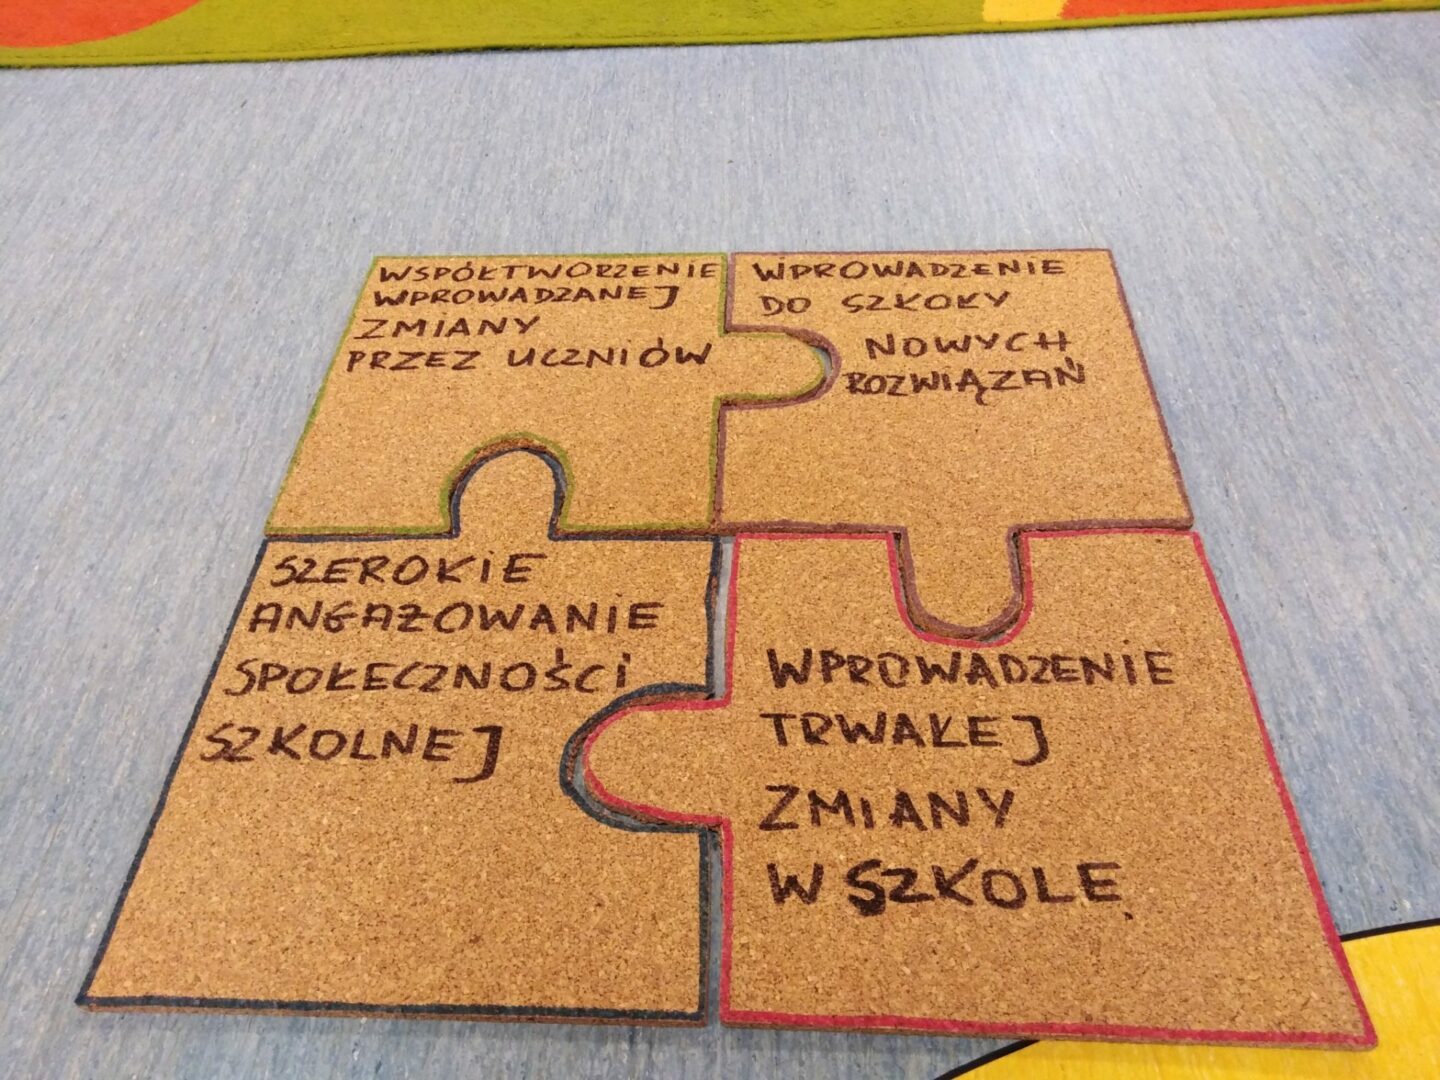 WSPÓŁTWORZENIE
WPROWADZANEJ
ZMIANY
PRZEZ UCZNIÓW
WPROWADZENIE
DO SZKOŁY
NOWYCH
ROZWIĄZAŃ
SZEROKIE
ANGAŻOWANIE
SPOŁECZNOŚCI
SZKOLNEJ
WPROWADZENIE
TRWAŁEJ
ZMIANY
W SZKOLE